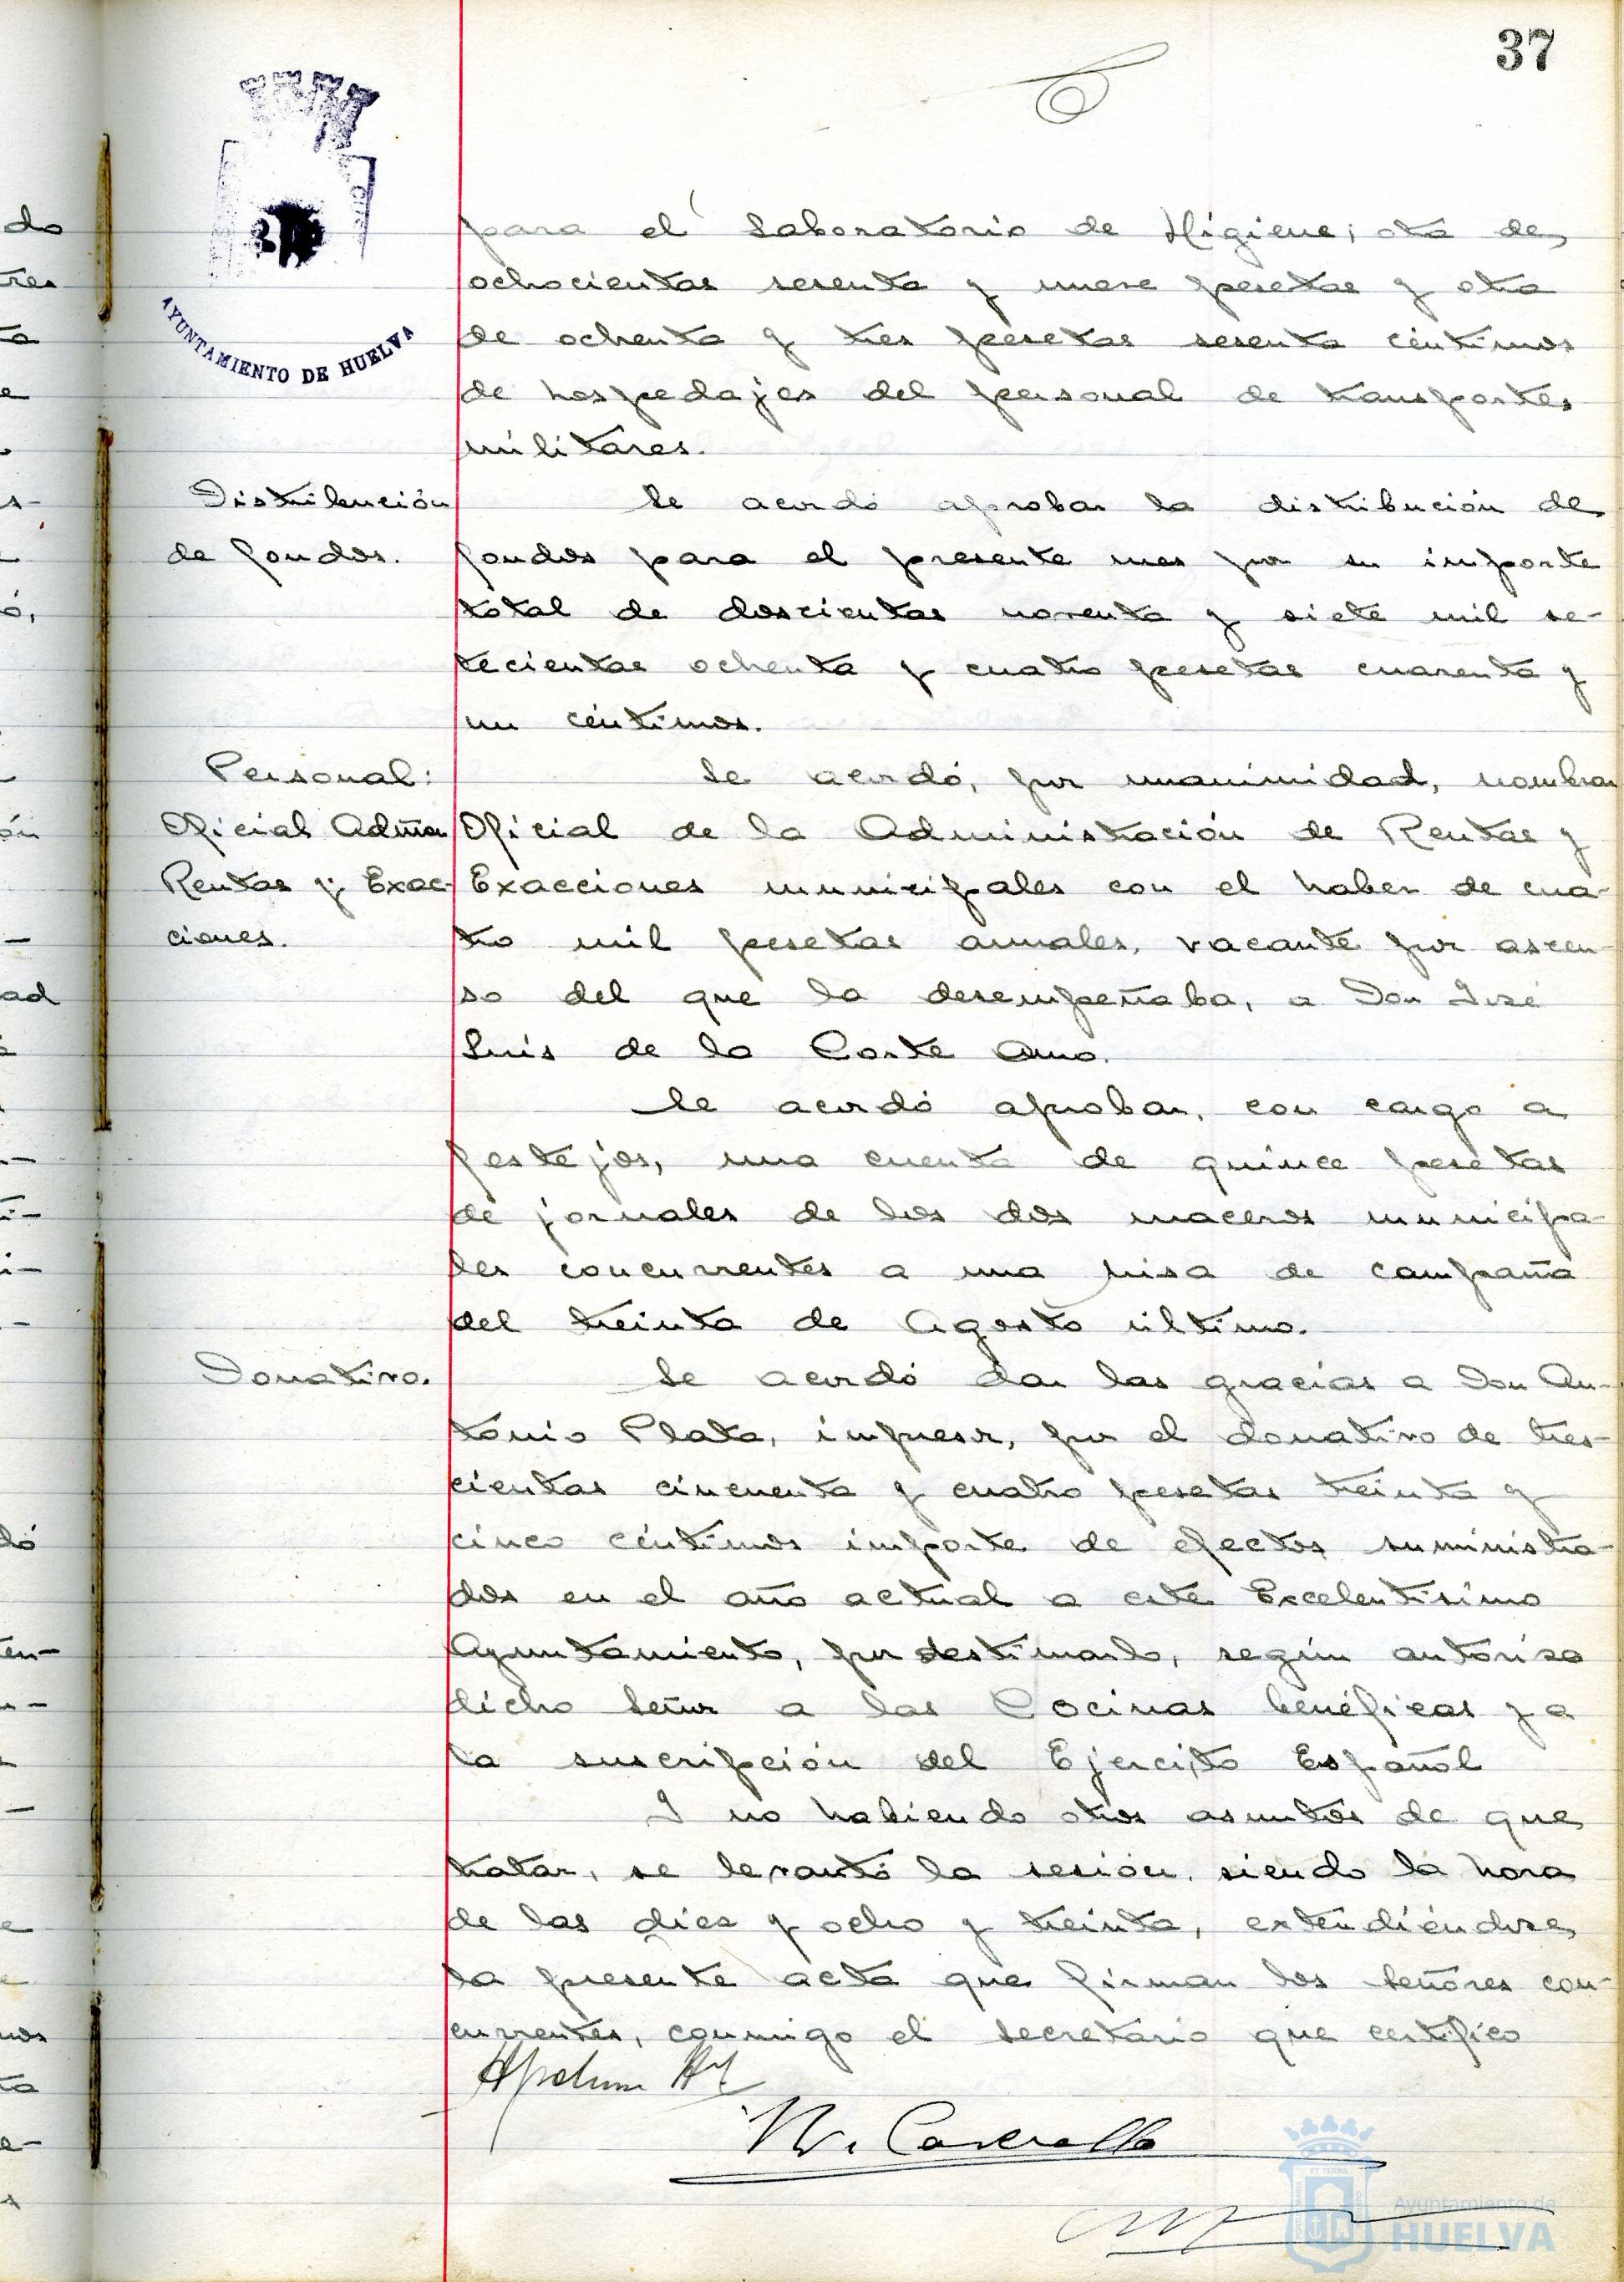 37
AYUNTAMIENTO DE HUELVA
para el Laboratorio de Higiene; otra de
ochocientas sesenta y nueve pesetas y otra
de ochenta y tres pesetas sesenta céntimos
de hospedajes del personal de transportes
militares.
Distribución
de fondos.
Se acordó aprobar la distribución de
fondos para el presente mes por su importe
total de doscientas noventa y siete mil se-
tecientas ochenta y cuatro pesetas cuarenta y
un céntimos.
Personal:
Oficial Admon
Rentas y Exac-
ciones.
Se acordó, por unanimidad, nombrar
Oficial de la Administración de Rentas y
Exacciones municipales con el haber de cua-
tro mil pesetas anuales, vacante por ascen-
so del que la desempeñaba, a Don José
Luis de la Corte
Se acordó aprobar, con cargo a
festejos, una cuenta de quince pesetas
de jornales de los dos maceros municipa-
les concurrentes a una misa de campaña
del treinta de Agosto último.
Donativo.
Se acordó dar las gracias a Don An-
tonio Plata, impresor, por el donativo de tres-
cientas cincuenta y cuatro pesetas treinta y
cinco céntimos importe de efectos suministra-
dos en el año actual a este Excelentísimo
Ayuntamiento, por destinarlo, según autoriza
dicho Señor a las Cocinas benéficas y a
la suscripción del Ejercito Español
Y no habiendo otros asuntos de que
tratar, se levantó la sesión, siendo la hora
de las diez y ocho y treinta, extendiéndose
la presente acta que firman los Señores con-
currentes, conmigo el secretario que certifico
Ayuntamiento de
HUELVA